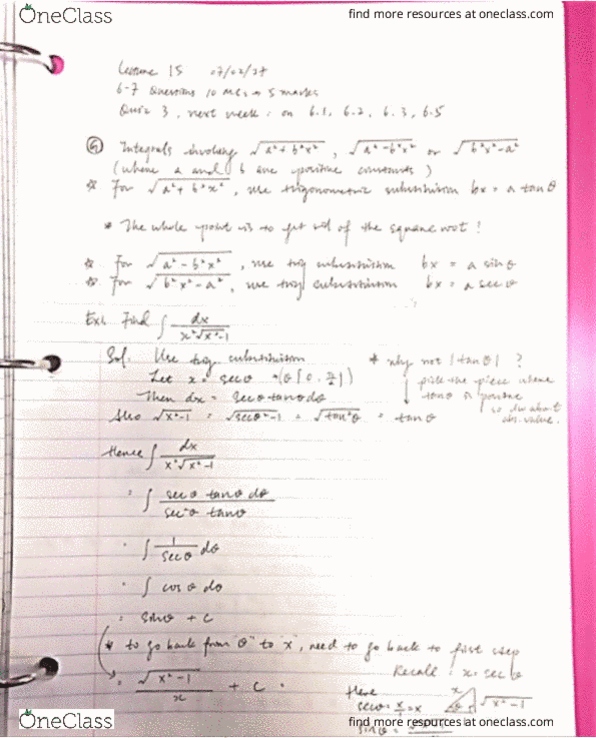 OneClass
find more resources at oneclass.com
Lecture 15 07/02/27
6-7 Questions 10 MCs → 5 marks
Quiz 3, next week : on 6.1, 6.2, 6.3, 6.5
Integrals involving √(a²+b²x²), √(a²-b²x²) or √(b²x²-a²)
(where a and b are positive constants)
☆ For √(a²+b²x²), use trigonometric substitution bx = a tanθ
* The whole point is to get rid of the square root!
☆ For √(a²-b²x²), use trig substitution bx = a sinθ
☆ For √(b²x²-a²), use trig substitution bx = a secθ
Ex1. Find ∫ dx / x²√(x²-1)
Sol. Use trig substitution
Let x = secθ (θ[0, π/2])
Then dx = secθ tanθ dθ
Also √(x²-1) = √(sec²θ-1) = √(tan²θ) = tanθ
* why not |tanθ| ?
pick the piece where
tanθ is positive
abs. value.
Hence ∫ dx / x²√(x²-1)
= ∫ secθ tanθ dθ / sec²θ tanθ
= ∫ 1/secθ dθ
= ∫ cosθ dθ
= sinθ + C
* to go back from "θ" to "x", need to go back to first step
Recall : x = secθ
= √(x²-1) / x + C.
Here
secθ = x/1 = x
x √(x²-1)
θ
sinθ =
OneClass
find more resources at oneclass.com